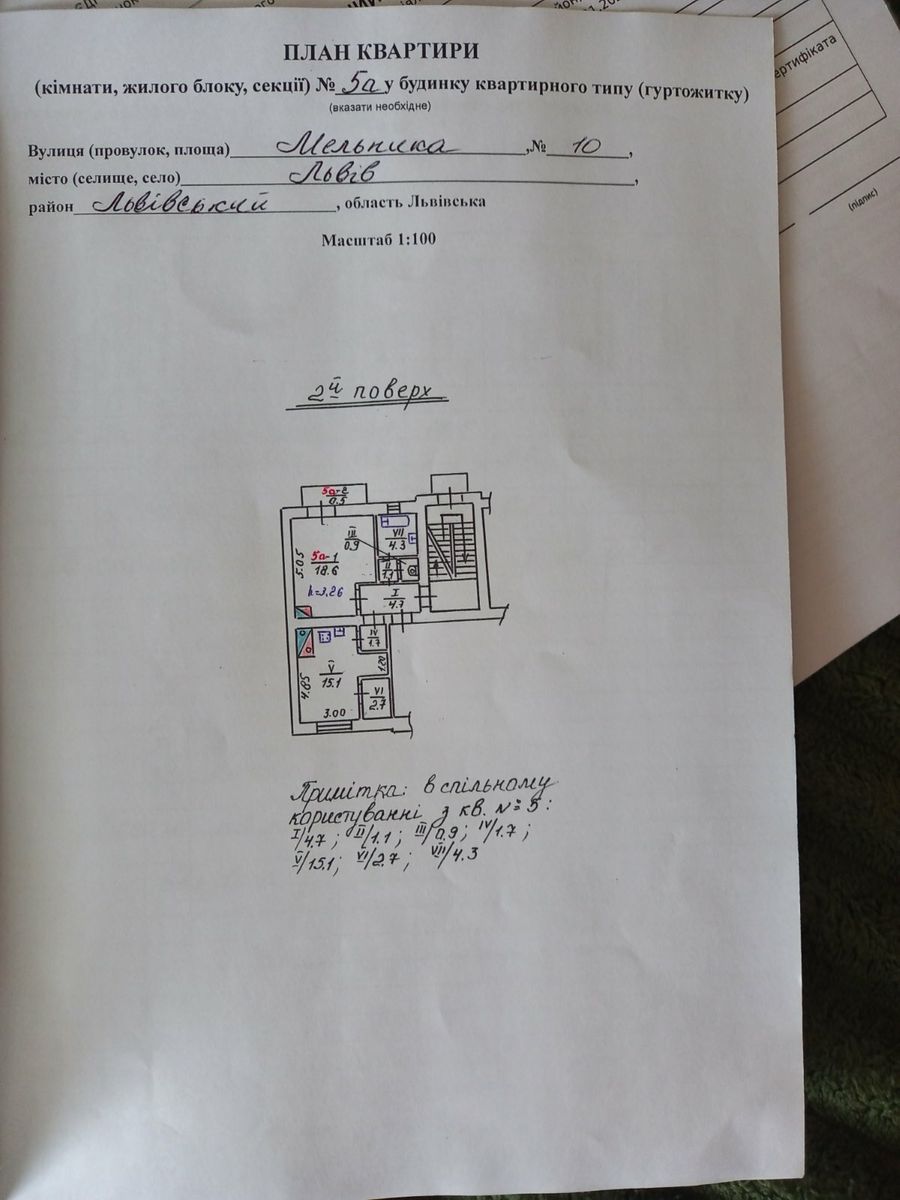 ртифіката
(підпис)
ПЛАН КВАРТИРИ
(кімнати, жилого блоку, секції) № 5а у будинку квартирного типу (гуртожитку)
(вказати необхідне)
Вулиця (провулок, площа) Мельника ,№ 10 ,
місто (селище, село) Львів ,
район Львівський , область Львівська
Масштаб 1:100
2й поверх
5а-2
0.5
III
0.9
VII
4.3
5.05
5а-1
18.6
II
1.1
h=3.26
I
4.7
IV
1.7
V
15.1
1.20
4.85
VI
2.7
3.00
Примітка: в спільному
користуванні з кв. №5:
I/4.7; II/1.1; III/0.9; IV/1.7;
V/15.1; VI/2.7; VII/4.3